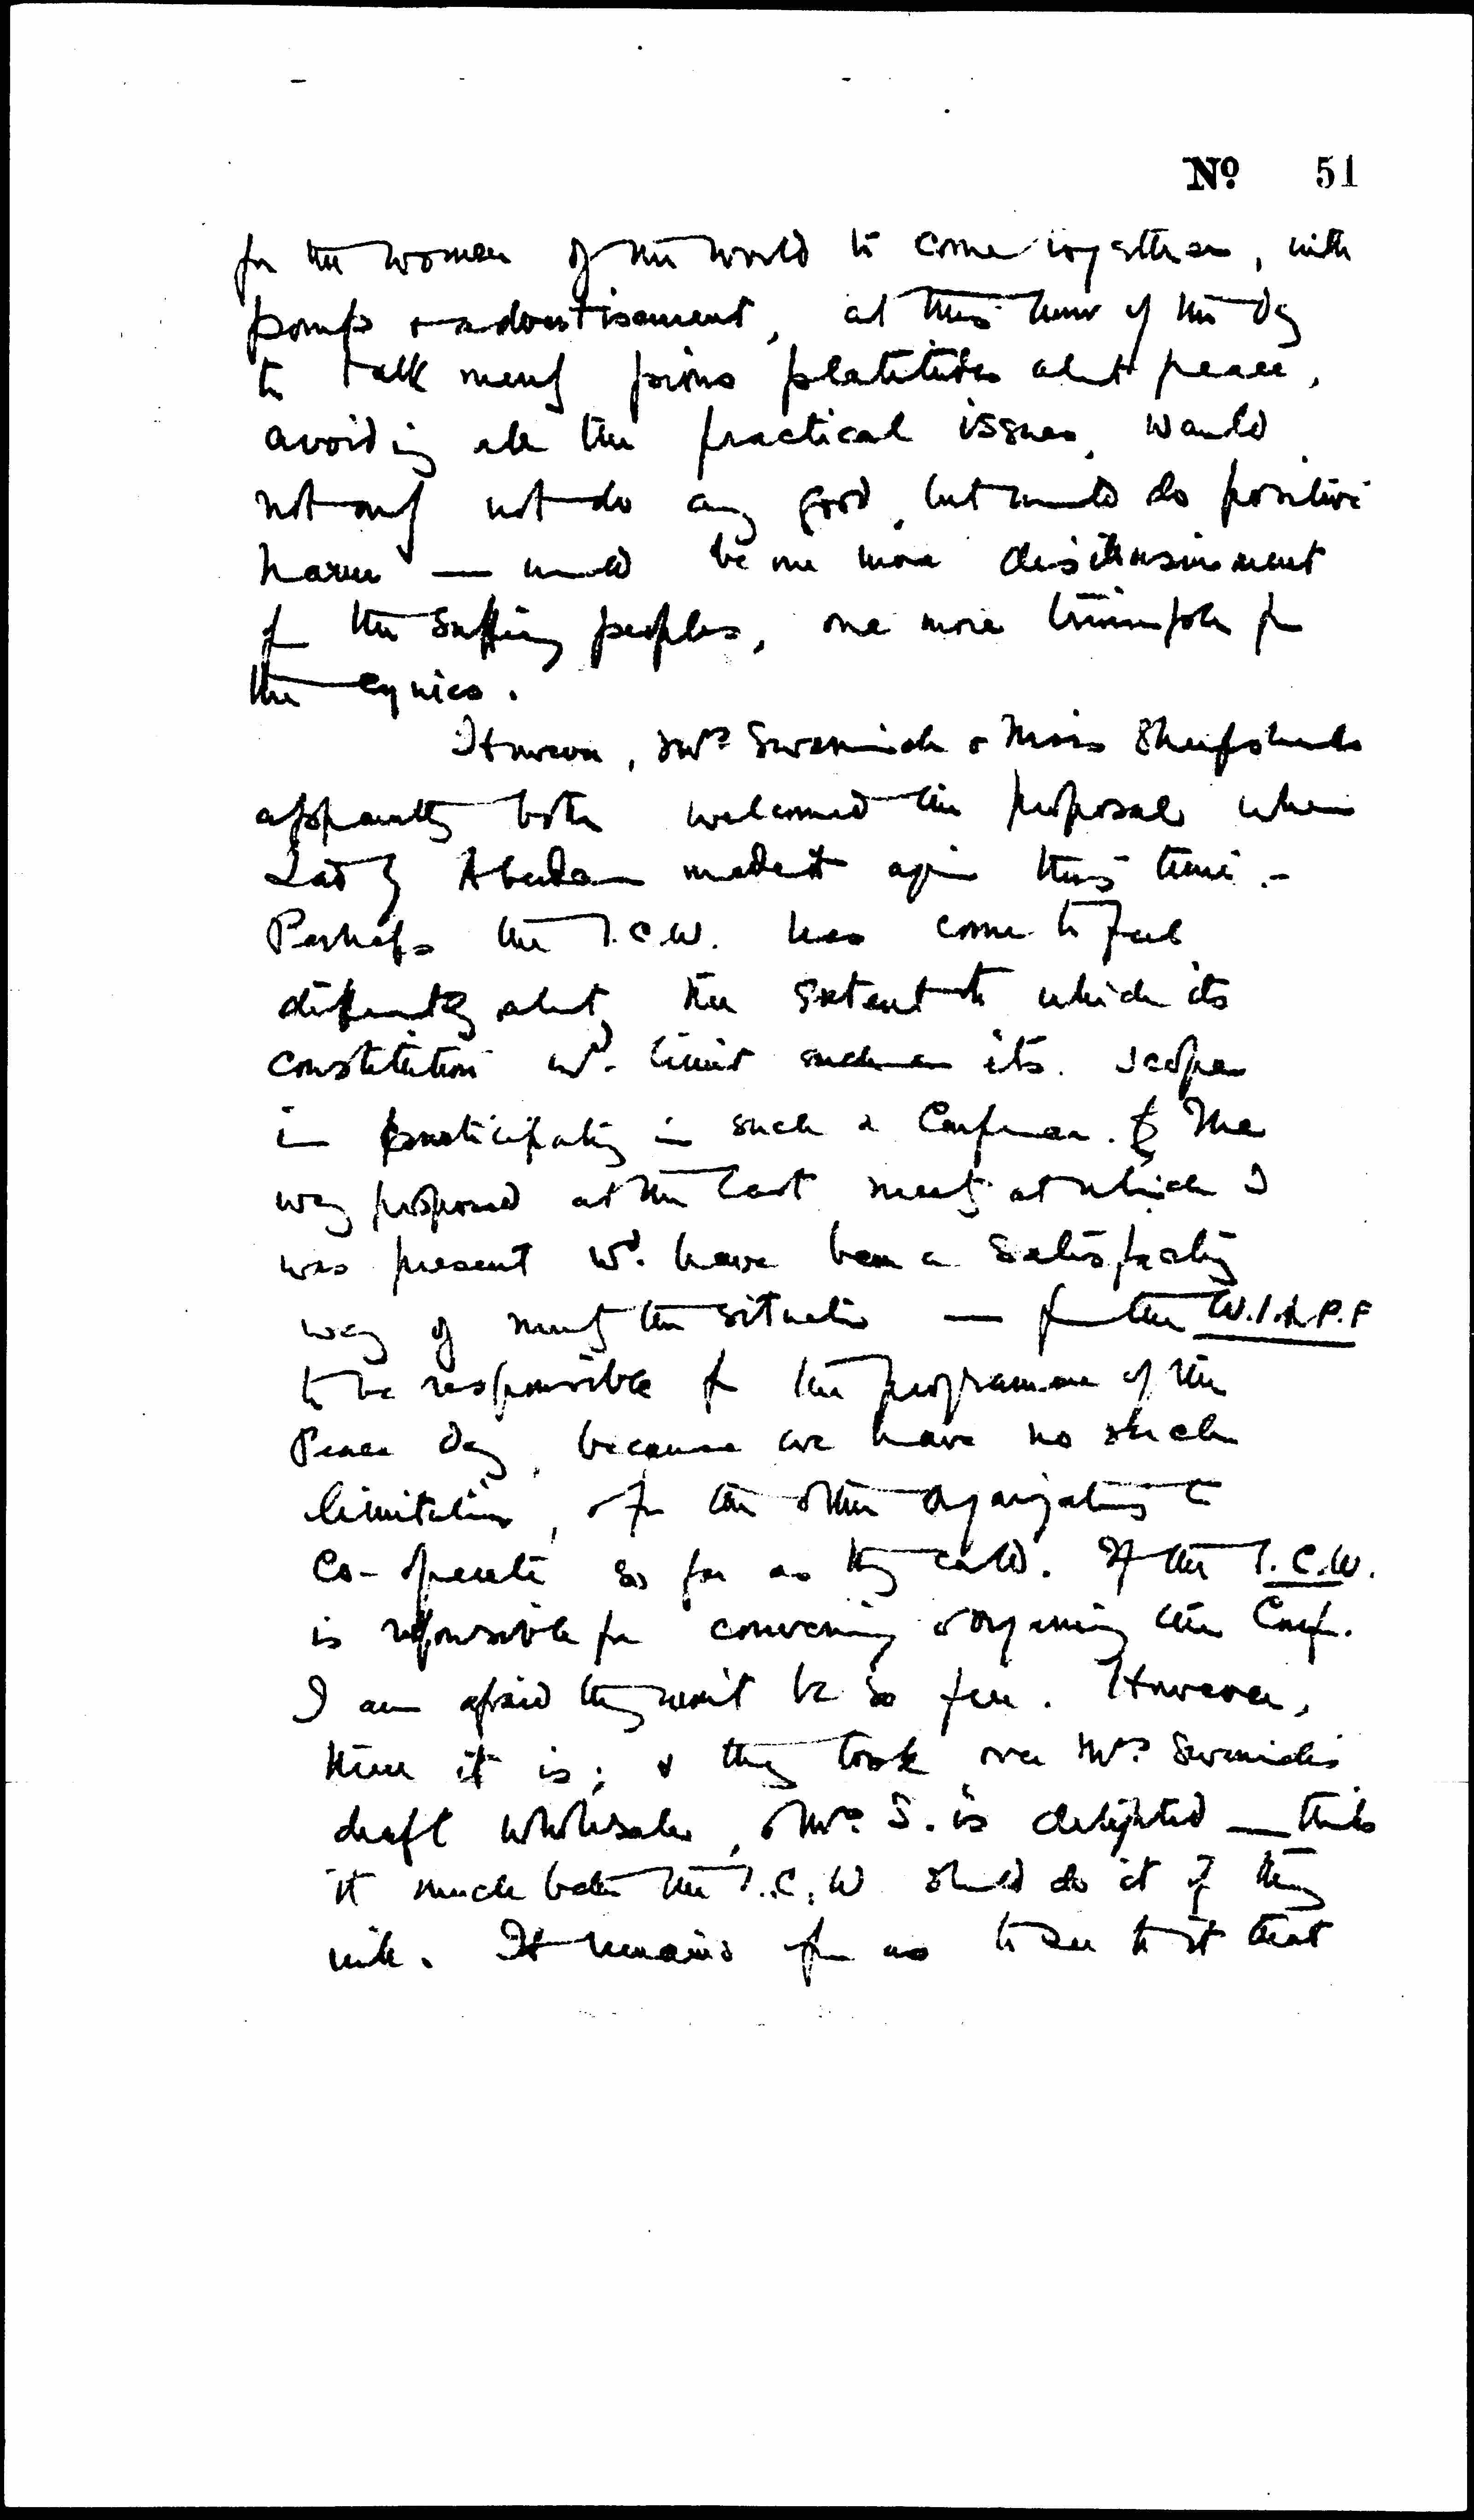 No 51
for the women of the world to come together, with
pomp & advertisement, at this hour of the day
to talk merely pious platitudes about peace,
avoiding all the practical issues, would
not only not do any good, but would do positive
harm — would be one more disillusionment
for the suffering peoples, one more triumph for
the cynics.
However, Mrs Swanwick & Miss Sheepshanks
apparently both welcomed the proposal when
Lady Aberdeen made it again this time. -
Perhaps the I.C.W. has come to feel
differently about the extent to which its
constitution wd. limit its scope
in participating in such a Conference. The
way proposed at the last meeting at which I
was present wd. have been a satisfactory
way of meeting the situation — for the W.I.L.P.F
to be responsible for the programme of the
Peace day, because we have no such
limitations, & for the other organizations to
Co-operate so far as they could. If the I.C.W.
is responsible for convening & organising the Conf.
I am afraid they won't be so free. However,
there it is; & they took over Mrs Swanwick's
draft wholesale, & Mrs S. is delighted — thinks
it much better the I.C.W should do it if they
will. It remains for us to see to it that